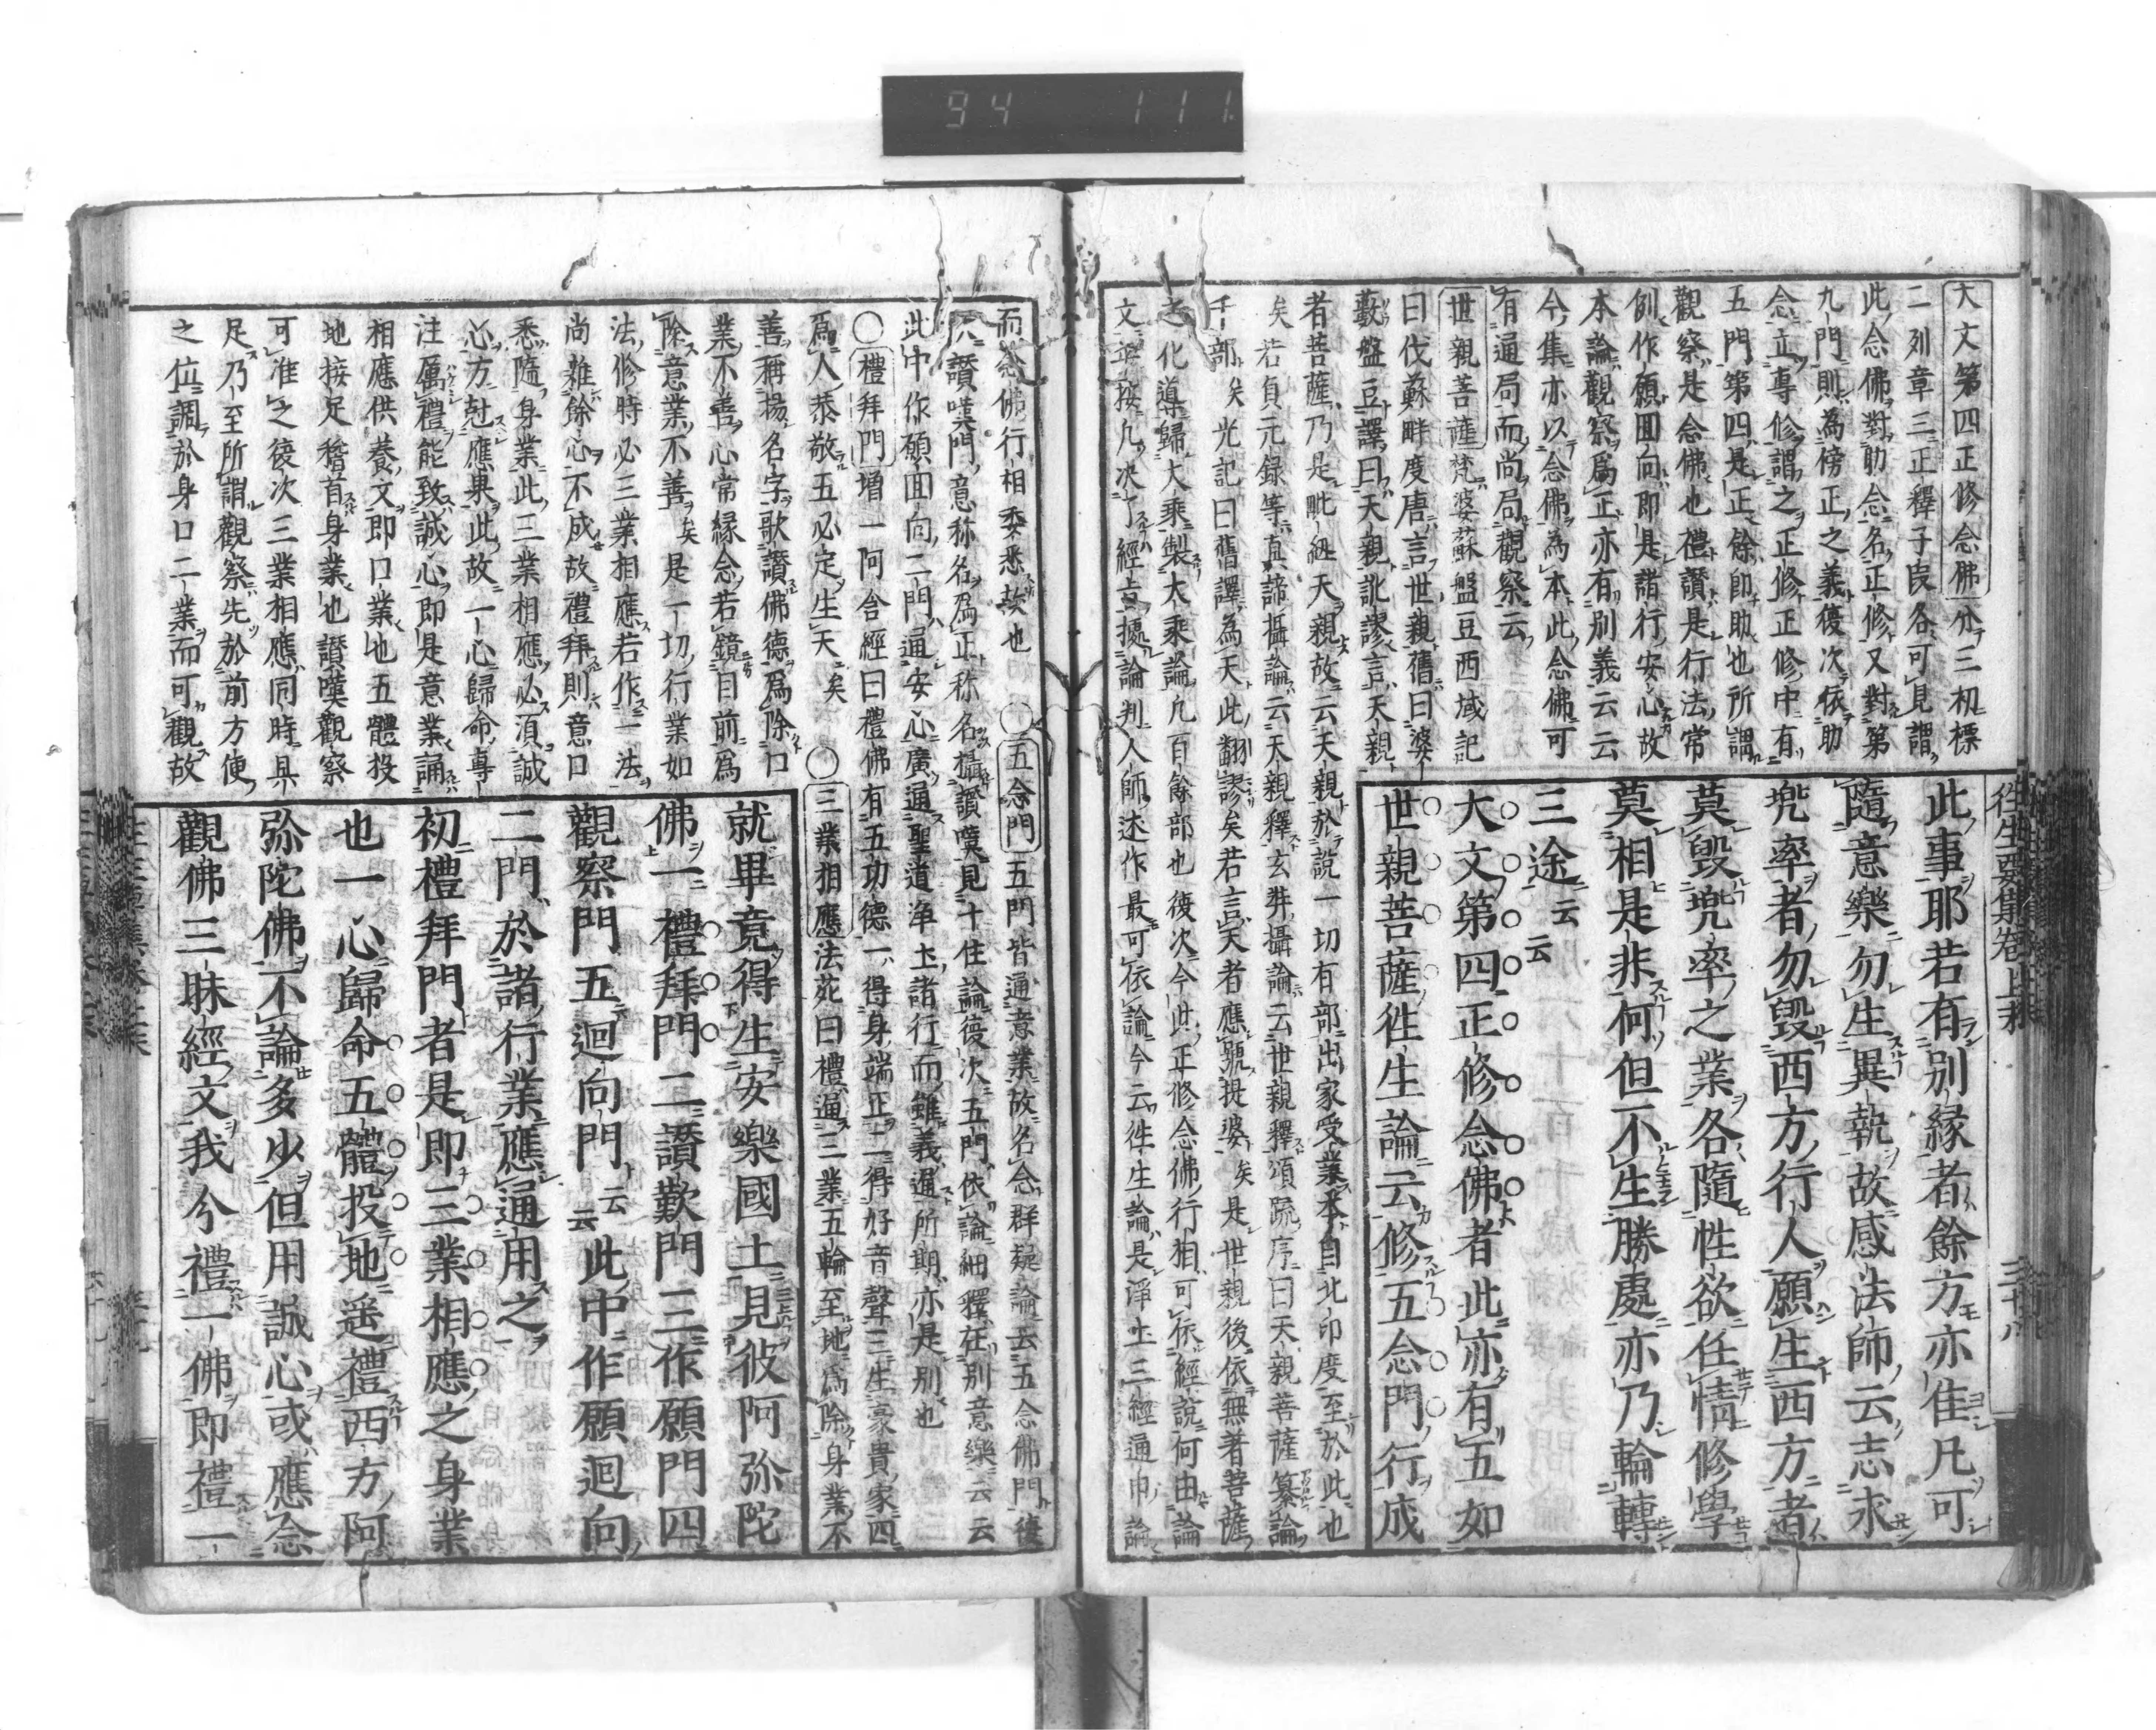 94 111
往生要集卷上末
三十八
大文第四正修念佛分三初標
二列章三正釋子段各可見謂
此念佛對助念名正修又對第
九門則為傍正之義復次依助
念立專修謂之正修正修中有
五門第四是正餘即助也所謂
觀察是念佛也禮讚是行法常
例作願回向即是諸行安心故
本論觀察爲正亦有別義云云
今集亦以念佛為本此念佛可
有通局而尚局觀察云
世親菩薩梵婆蘇盤豆西域記
曰伐蘇畔度唐言世親舊曰婆
藪盤豆譯曰天親訛謬言天親
者菩薩乃是毗紐天親故云天親於說一切有部出家受業本自北印度至於此也
矣若貞元錄等真諦攝論云天親釋玄奘攝論云世親釋頌疏序曰天親菩薩纂論
千部矣光記曰舊譯為天此翻謬矣若言天者應號提婆矣是世親後依無著菩薩
之化導歸大乘製大乘論凡百餘部也復次今此正修念佛行相可依經說何由論
文並按凡決了經與據論判人師述作最可依論今云徃生論是淨土三經通申論
此事耶若有別緣者餘方亦佳凡可
隨意樂勿生異執故感法師云志求
兜率者勿毀西方行人願生西方者
莫毀兜率之業各隨性欲任情修學
莫相是非何但不生勝處亦乃輪轉
三途云云
大文第四正修念佛者此亦有五如
世親菩薩徃生論云修五念門行成
而念佛行相委悉故也〇五念門五門皆通意業故名念群疑論云五念佛門復
次讚嘆門意称名爲正称名攝讚嘆見十住論復次五門依論細釋在別意樂云云
此中作願回向二門通安心廣通聖道淨土諸行而雖義通所期亦是別也
〇禮拜門增一阿含經曰禮佛有五功德一得身端正二得好音聲三生豪貴家四
爲人恭敬五必定生天矣〇三業相應法苑曰禮通三業五輪至地爲除身業不
善稱揚名字歌讚佛德爲除口
業不善心常緣念若鏡目前爲
除意業不善矣是一切行業如
法修時必三業相應若作一法
尚雜餘心不成故禮拜則意口
悉隨身業此三業相應必須誠
心方尅應果此故一心歸命專
注厲禮能致誠心即是意業誦
相應供養文即口業也五體投
地接足稽首身業也讚嘆觀察
可准之後次三業相應同時具
足乃至所謂觀察先於前方便
之位調於身口二業而可觀故
就畢竟得生安樂國土見彼阿弥陀
佛一禮拜門二讚歎門三作願門四
觀察門五迴向門云云此中作願迴向
二門於諸行業應通用之
初禮拜門者是即三業相應之身業
也一心歸命五體投地遥禮西方阿
弥陀佛不論多少但用誠心或應念
觀佛三昧經文我今禮一佛即禮一